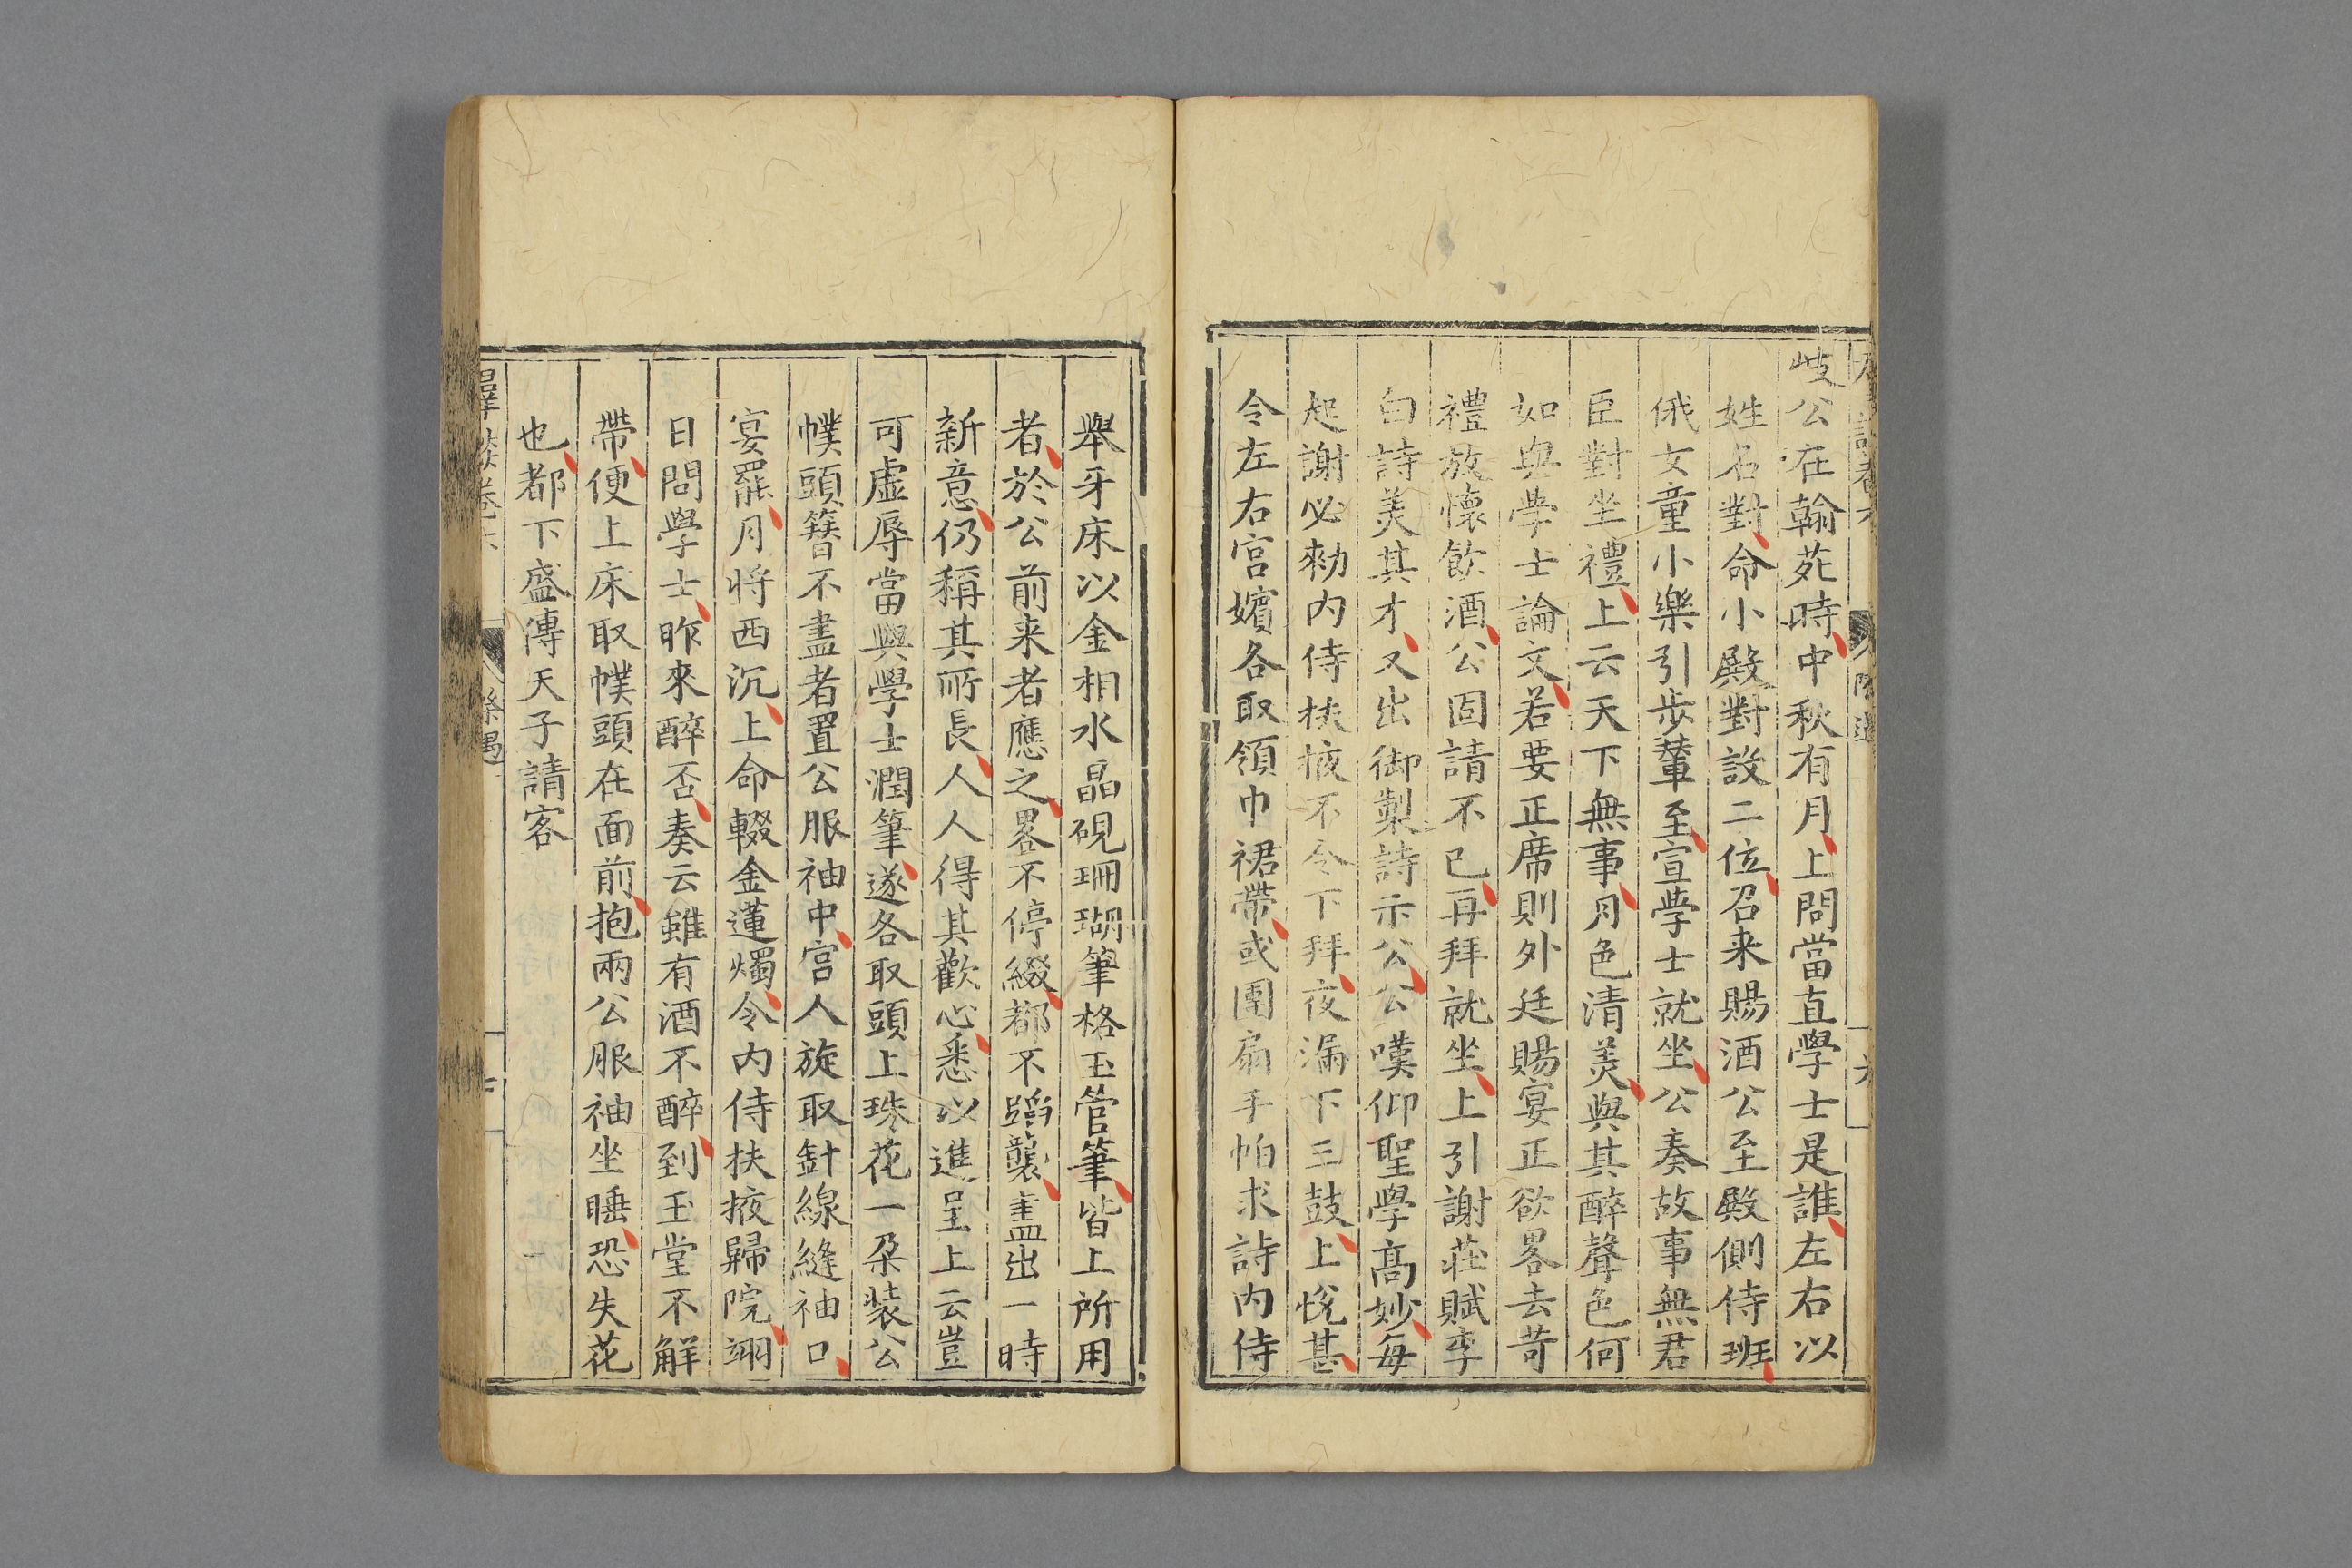 岐公在翰苑時中秋有月上問當直學士是誰左右以
姓名對命小殿對設二位召来賜酒公至殿側侍班
俄女童小樂引步輦至宣學士就坐公奏故事無君
臣對坐禮上云天下無事月色清美與其醉聲色何
如與學士論文若要正席則外廷賜宴正欲畧去苛
禮放懷飲酒公固請不已再拜就坐上引謝莊賦李
白詩美其才又出御製詩示公公嘆仰聖學髙妙每
起謝必勑内侍扶掖不令下拜夜漏下三鼓上悅甚
令左右宫嬪各取領巾裙帶或團扇手帕求詩内侍
舉牙床以金相水晶硯珊瑚筆格玉管筆皆上所用
者於公前来者應之畧不停綴都不蹈襲盡出一時
新意仍稱其所長人人得其歡心悉以進呈上云豈
可虚辱當與學士潤筆遂各取頭上珠花一朶装公
幞頭簪不盡者置公服袖中宫人旋取針線縫袖口
宴罷月将西沉上命輟金蓮燭令内侍扶掖歸院翊
日問學士昨來醉否奏云雖有酒不醉到玉堂不解
帶便上床取幞頭在面前抱兩公服袖坐睡恐失花
也都下盛傳天子請客